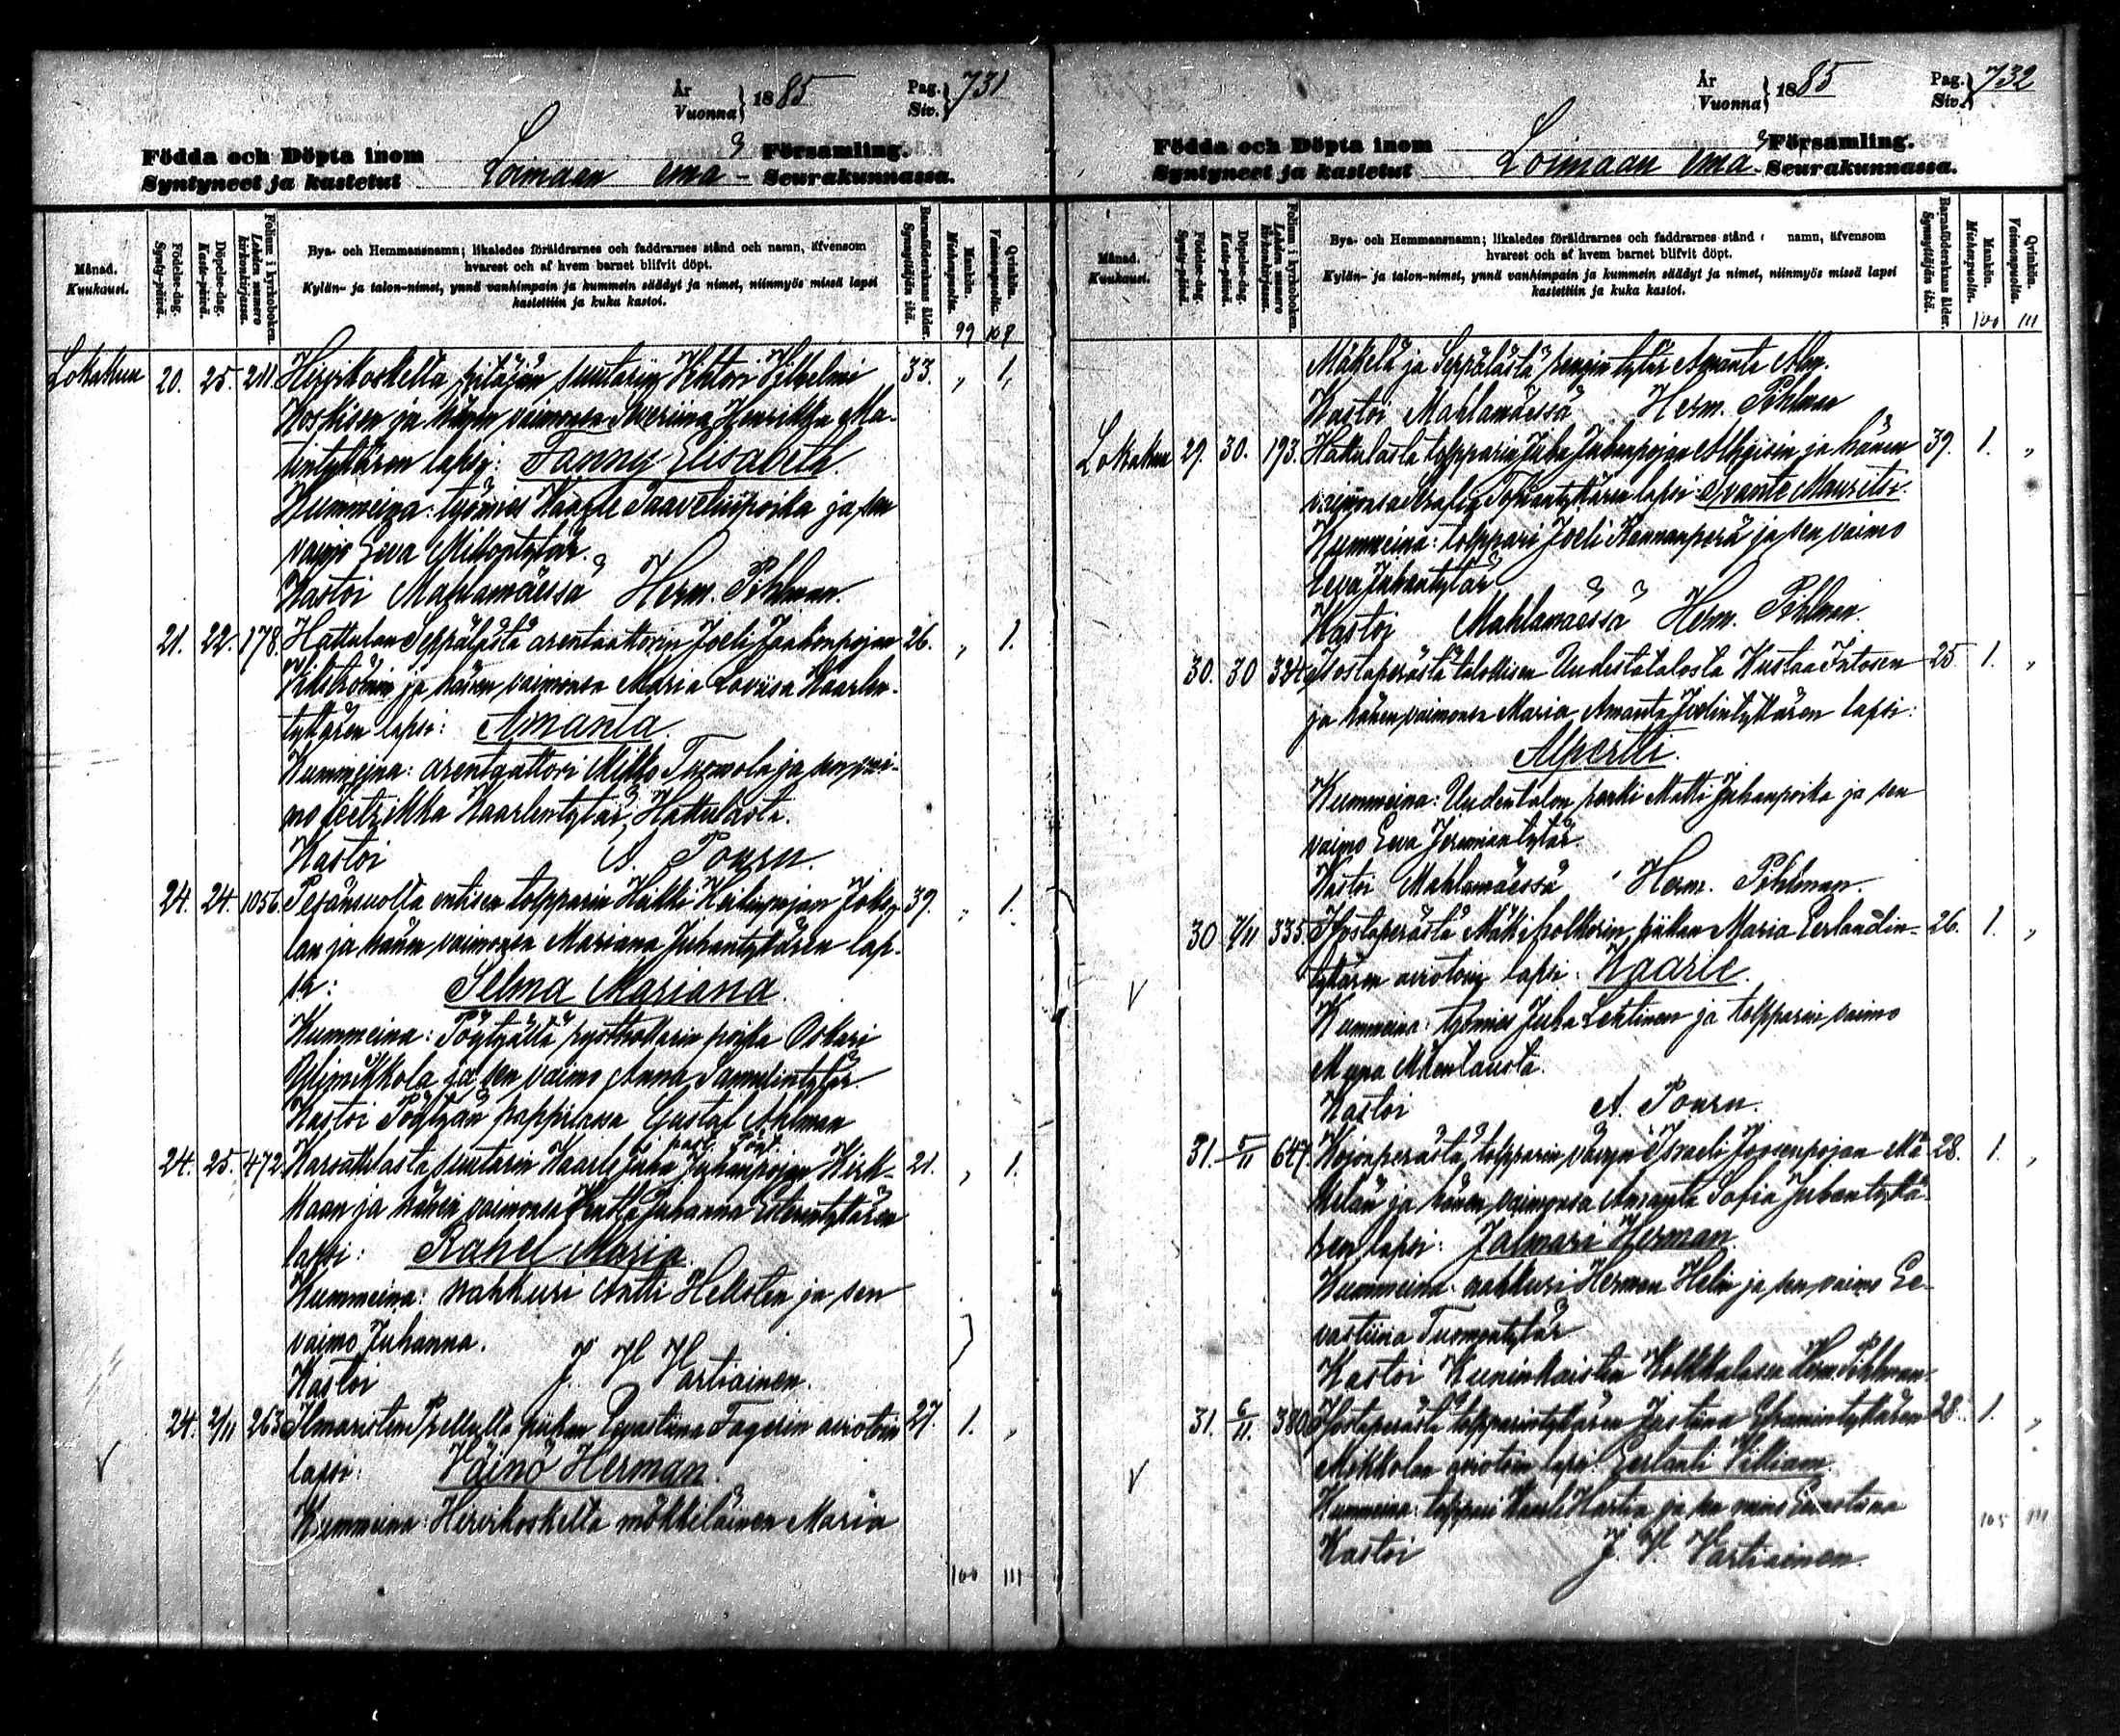 År
Vuonna } 1885
Pag.
Siv. } 731
Födda och Döpta inom Församling.
Syntyneet ja kastetut Loimaan ema- Seurakunnassa.
Månad.
Kuukausi.
Födelse-dag.
Synty-päivä.
Döpelse-dag.
Kaste-päivä.
Folium i kyrkoboken.
Lehden numero kirkonkirjassa.
Bya- och Hemmansnamn; likaledes föräldrarnes och faddrarnes stånd och namn, äfvensom
hvarest och af hvem barnet blifvit döpt.
Kylän- ja talon-nimet, ynnä vanhimpain ja kummein säädyt ja nimet, niinmyös missä lapsi
kastettiin ja kuka kastoi.
Barnaföderskans ålder.
Synnyttäjän ikä.
Mankön.
Miehenpuolia.
Qvinkön.
Vaimonpuolia.
99
Lokakuu 20. 25. 211 Hirvikoskelta pitäjän suutarin Vihtori Vilhelmi 33. „ 1.
Koskisen ja hänen vaimonsa Henrikka Ma-
tintyttären lapsi: Fanny Elisabeth.
Kummeina: työmies Kaarle Taavetinpoika ja sen
vaimo Eeva Mikontytär.
Kastoi Mahlamäessä Herm. Pihlman.
21. 22. 178. Hattulan Seppälästä arentaattorin Joeli Jaakonpojan 26. „ 1.
Vikströmin ja hänen vaimonsa Maria Loviisa Kaarlen-
tyttären lapsi: Amanta.
Kummeina: arentaattori Mikko Tuomola ja sen vai-
mo Kaarlentytär Hattulasta.
Kastoi A. Pouru.
24. 24. 1056. Pesänsuolta entisen torpparin Heikki Heikinpojan Joke- 39. „ 1.
lan ja hänen vaimonsa Mariana Juhantyttären lap-
si: Selma Mariana.
Kummeina: Pöytyältä poika Oskari
Ylinikkola ja sen vaimo Anna Samulintytär.
Kastoi Pöytyän pappilassa Gustaf Ahlman
24. 25. 472. suutarin Kaarle Juha Juhanpojan Kirk- 21. „ 1.
kaan ja hänen vaimonsa Juhanna
lapsi: Rahel Maria.
Kummeina: nahkuri Antti Hellsten ja sen
vaimo Juhanna.
Kastoi J. H. Vartiainen.
24. 2/11 263 Ilmaristen Prellulla piikan Evastiina Fagerin aviotoin 27. 1. „
lapsi: Väinö Herman.
Kummeina: Hirvikoskelta mökkiläinen Maria
100 111
År
Vuonna } 1885
Pag.
Siv. } 732
Födda och Döpta inom Församling.
Syntyneet ja kastetut Loimaan ema- Seurakunnassa.
Månad.
Kuukausi.
Födelse-dag.
Synty-päivä.
Döpelse-dag.
Kaste-päivä.
Folium i kyrkoboken.
Lehden numero kirkonkirjassa.
Bya- och Hemmansnamn; likaledes föräldrarnes och faddrarnes stånd namn, äfvensom
hvarest och af hvem barnet blifvit döpt.
Kylän- ja talon-nimet, ynnä vanhimpain ja kummein säädyt ja nimet, niinmyös missä lapsi
kastettiin ja kuka kastoi.
Barnaföderskans ålder.
Synnyttäjän ikä.
Mankön.
Miehenpuolia.
Qvinkön.
Vaimonpuolia.
100 111
Mäkelä ja Seppälästä rengin tytär Amanta
Kastoi Mahlamäessä Herm. Pihlman
Lokakuu 29. 30. 193. Hattulasta torpparin Juha Juhanpojan ja hänen 39. 1. „
vaimonsa lapsi: Svante Maurits.
Kummeina: torppari Joeli Rannanperä ja sen vaimo
Eeva Juhantytär
Kastoi Mahlamäessä Herm. Pihlman.
30. 30 324 talollisen Uudestatalosta Kustaa Intosen 25 1. „
ja hänen vaimonsa Maria Amanta Joelintyttären lapsi:
Alpertti.
Kummeina: Uudentalon Matti Juhanpoika ja sen
vaimo Eeva Jeremiaantytär
Kastoi Mahlamäessä Herm. Pihlman.
30 7/11 335. piikan Maria Eerlandin- 26. 1. „
tyttären aviotoin lapsi: Kaarle.
Kummeina: työmies Juha Lehtinen ja torpparin vaimo
Kastoi A. Pouru.
31. 5/11 647 Kojonperästä torpparin vävyn Israeli Joosenpojan Mä- 28. 1. „
kelän ja hänen vaimonsa Amanta Sofia Juhantyttä-
ren lapsi: Jalmari Herman
Kummeina: nahkuri Herman Helin ja sen vaimo Ee-
vastiina Tuomontytär
Kastoi Kuninkaisten Kolkkalassa Herm. Pihlman
31. 6/11. 380 torpparintyttären Justiina 28. 1. „
Mikkolan aviotoin lapsi: Eerlanti Villiam.
Kummeina: torppari Kaarle ja sen vaimo Eevastiina
Kastoi J. H. Vartiainen.
105 111